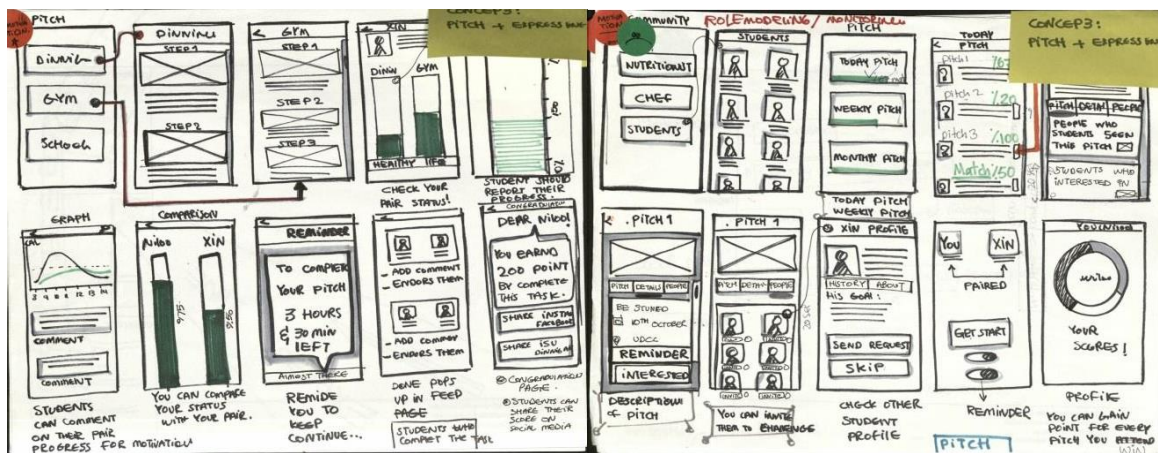 PITCH
DINNING
GYM
SCHOOL
DINNING
STEP1
STEP2
GYM
STEP1
STEP 2
STEP3
XIN
DININ
GYM
HEALTHY LIFE
CHECK YOUR
PAIR STATUS!
CONCEP3:
PITCH +
STUDENT SHOULD
REPORT THEIR
PROGRESS.
GRAPH
CAL
COMMENT
COMMENT
STUDENTS
CAN COMMENT
ON THEIR PAIR
PROGRESS FOR MOTIVATION
COMPARISON
NILOO
XIN
YOU CAN COMPARE
YOUR STATUS
WITH YOUR PAIR.
REMINDER
TO COMPLETE
YOUR PITCH
3 HOURS
& 30 MIN
LEFT
ALMOST THERE
REMIDE
YOU TO
KEEP
CONTINUE...
ADD COMMENT
ENDORS THEM
ADD COMMENT
ENDORS THEM
DONE POPS
UP IN FEED
PAGE
STUDENTS WHO
COMPLET THE TASK
CONGRADULATION
DEAR NILOO!
YOU EARND
200 POINT
BY COMPLETE
THIS TASK.
SHARE INSTA
FACEBOOK
SHARE ISU
DINNING
CONGRADULATION
PAGE.
STUDENTS CAN
SHARE THEIR
SCORE ON
SOCIAL MEDIA
Community
NUTRITIONIST
CHEF
STUDENTS
ROLEMODELING / MONITORING
STUDENTS
PITCH
TODAY PITCH
WEEKLY PITCH
MONTHLY PITCH
TODAY PITCH
WEEKLY PITCH
TODAY
PITCH
pitch1
pitch 2
%20
pitch 3
%100
Match %50
CONCEP3:
PITCH +
PITCH DETAIL PEOPLE
PEOPLE WHO
STUDENTS SEEN
THIS PITCH
STUDENTS WHO
INTERESTED IN
.PITCH 1
PITCH DETAILS PEOPLE
10TH OCTOBER
UDCC
REMINDER
INTERESTED
DESCRIPTION
OF PITCH
.PITCH 1
PITCH DETAIL PEOPLE
INVITE
INVITE
INVITE
INVITE
YOU CAN INVITE
THEM TO CHALLENGE
XIN PROFILE
HISTORY ABOUT
HIS GOAL:
SEND REQUEST
SKIP
CHECK OTHER
STUDENT
PROFILE
YOU
XIN
PAIRED
GET START
REMINDER
PITCH
YOUR
SCORES!
PROFILE
YOU CAN GAIN
POINT FOR EVERY
PITCH YOU
WIN